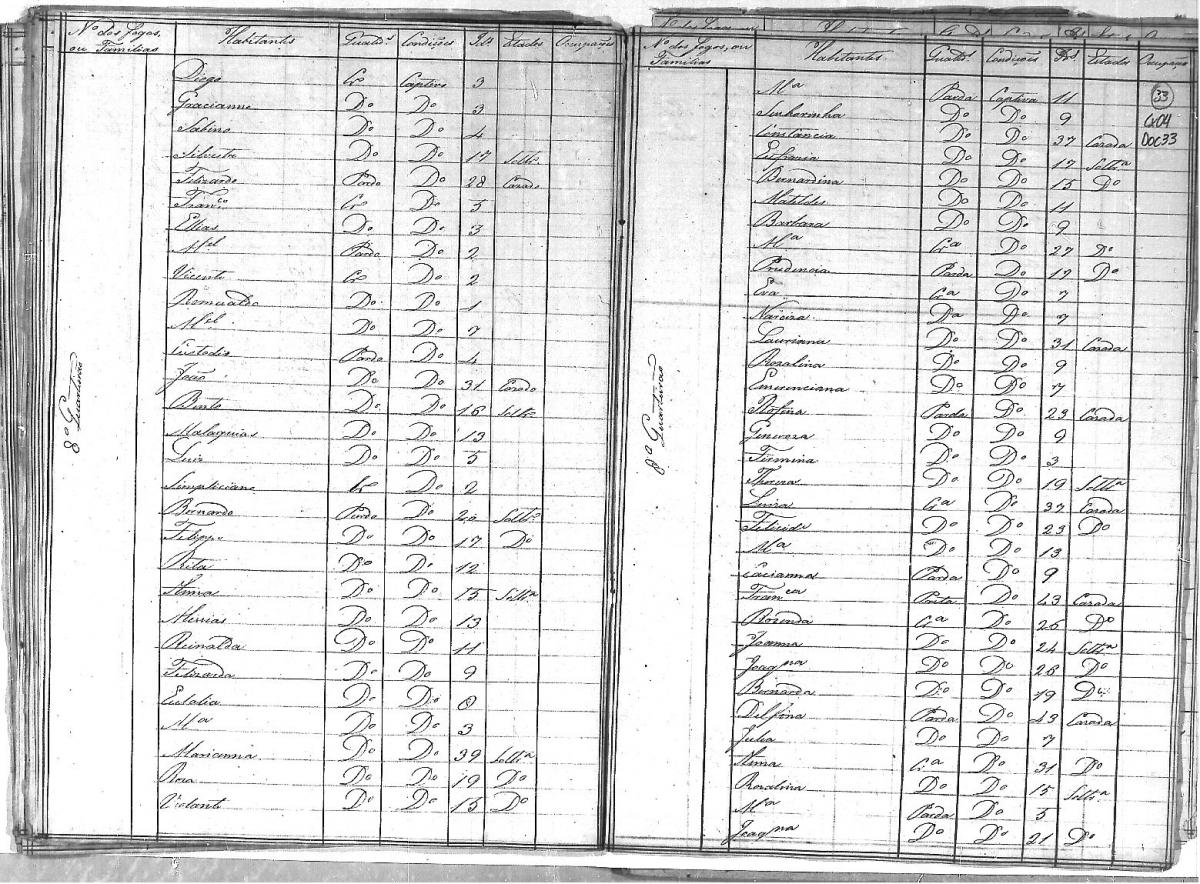 Nº dos Fogos, ou Familias Habitantes Qualid.s Condições Id.s Estados Ocupações
8º Quarteirão
Diogo Cr.o Captivo 3
Gracianno Dº Dº 3
Sabino Dº Dº 4
Silvestre Dº Dº 17 Soltr.o
Felizardo Pardo Dº 28 Casado
Franco Cr.o Dº 5
Elias Dº Dº 3
M.el Pardo Dº 2
Vicente Cr.o Dº 2
Romualdo Dº Dº 1
M.el Dº Dº 7
Custodio Pardo Dº 4
João Dº Dº 31 Casado
Bento Dº Dº 16 Soltr.o
Malaquias Dº Dº 13
Luis Dº Dº 5
Simpliciano Cr.o Dº 2
Bernardo Pardo Dº Soltr.o
Felippe Dº Dº 17 Dº
Rita Dº Dº 12
Anna Dº Dº 15 Soltr.a
Messias Dº Dº 13
Reinalda Dº Dº 11
Felizarda Dº Dº 9
Eulalia Dº Dº 8
M.a Dº Dº 3
Marianna Dº Dº 39 Soltr.a
Rosa Dº Dº 19 Dº
Violante Dº Dº 15 Dº
Nº dos Fogos, ou Familias Habitantes Qualid.s Condições Id.s Estados Ocupações
8º Quarteirão
33
Cx04
Doc33
M.a Parda Captiva 11
Sinharinha Dº Dº 9
Constancia Dº Dº 37 Casada
Eufrasia Dº Dº 17 Soltr.a
Bernardina Dº Dº 15 Dº
Matildes Dº Dº 11
Barbara Dº Dº 9
M.a Cr.a Dº 27 Dº
Prudencia Parda Dº 12 Dº
Eva Cr.a Dº 7
Narciza Dº Dº 7
Lauriana Dº Dº 31 Casada
Rozalina Dº Dº 9
Emerenciana Dº Dº 7
Rofina Parda Dº 23 Casada
Generoza Dº Dº 9
Firmina Dº Dº 3
Thereza Dº Dº 19 Soltr.a
Luiza Cr.a Dº 37 Casada
Felicida Dº Dº 23 Dº
M.a Dº Dº 13
Cacianna Parda Dº 9
Fran.ca Dº 43 Casada
Rozenda Cr.a Dº 26 Dº
Joanna Dº Dº 24 Soltr.a
Joaq.na Dº Dº 26 Dº
Bernarda Dº Dº 19 Dº
Delfina Parda Dº 43 Casada
Julia Dº Dº 7
Anna Cr.a Dº 31 Dº
Rozalina Dº Dº 15 Soltr.a
M.a Parda Dº 5
Joaq.na Dº Dº 21 Dº